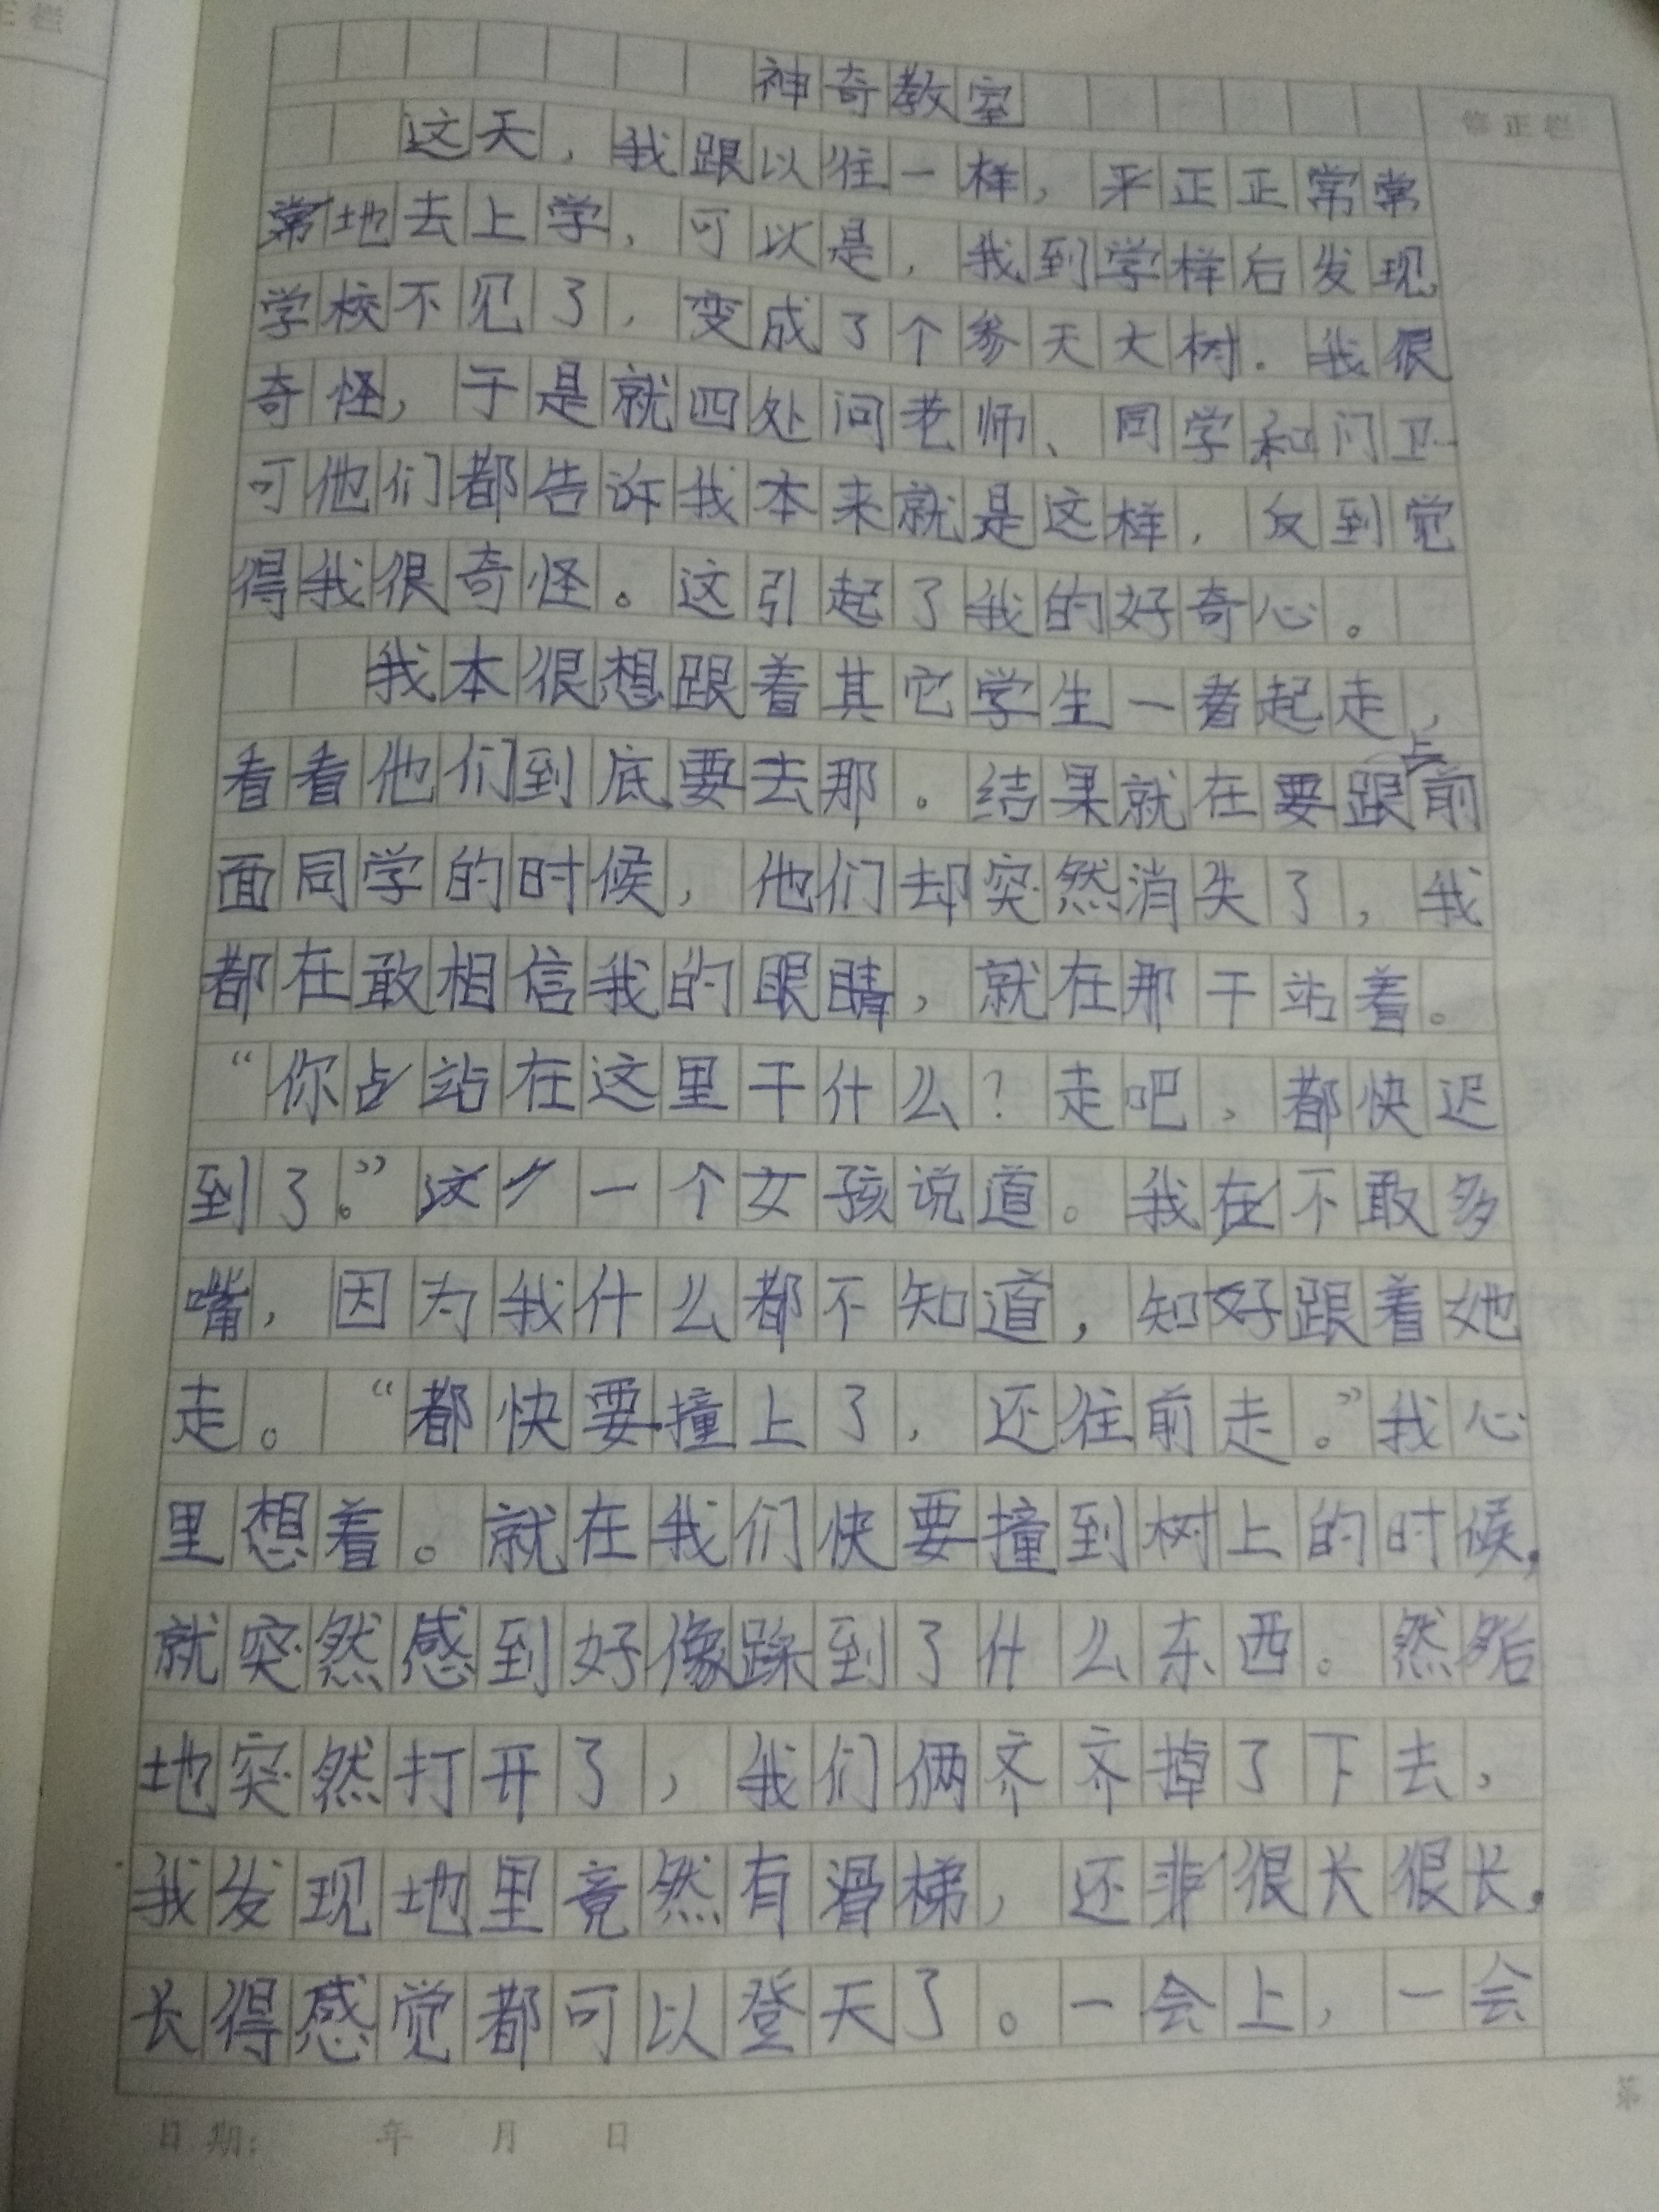 正栏
神奇教室
修正栏
这天，我跟以往一样，平正正常常
常地去上学，可以是，我到学样后发现
学校不见了，变成了个参天大树．我很
奇怪，于是就四处问老师、同学和门卫
可他们都告诉我本来就是这样，反到觉
得我很奇怪。这引起了我的好奇心。
我本很想跟着其它学生一着起走，
看看他们到底要去那。结果就在要跟上前
面同学的时候，他们却突然消失了，我
都在敢相信我的眼睛，就在那干站着。
“你占站在这里干什么？走吧，都快迟
到了。”这一个女孩说道。我在不敢多
嘴，因为我什么都不知道，知好跟着她
走。“都快要撞上了，还往前走。”我心
里想着。就在我们快要撞到树上的时候，
就突然感到好像跺到了什么东西。然后
地突然打开了，我们俩齐齐掉了下去，
我发现地里竟然有滑梯，还非很长很长，
长得感觉都可以登天了。一会上，一会
第
日期： 年 月 日